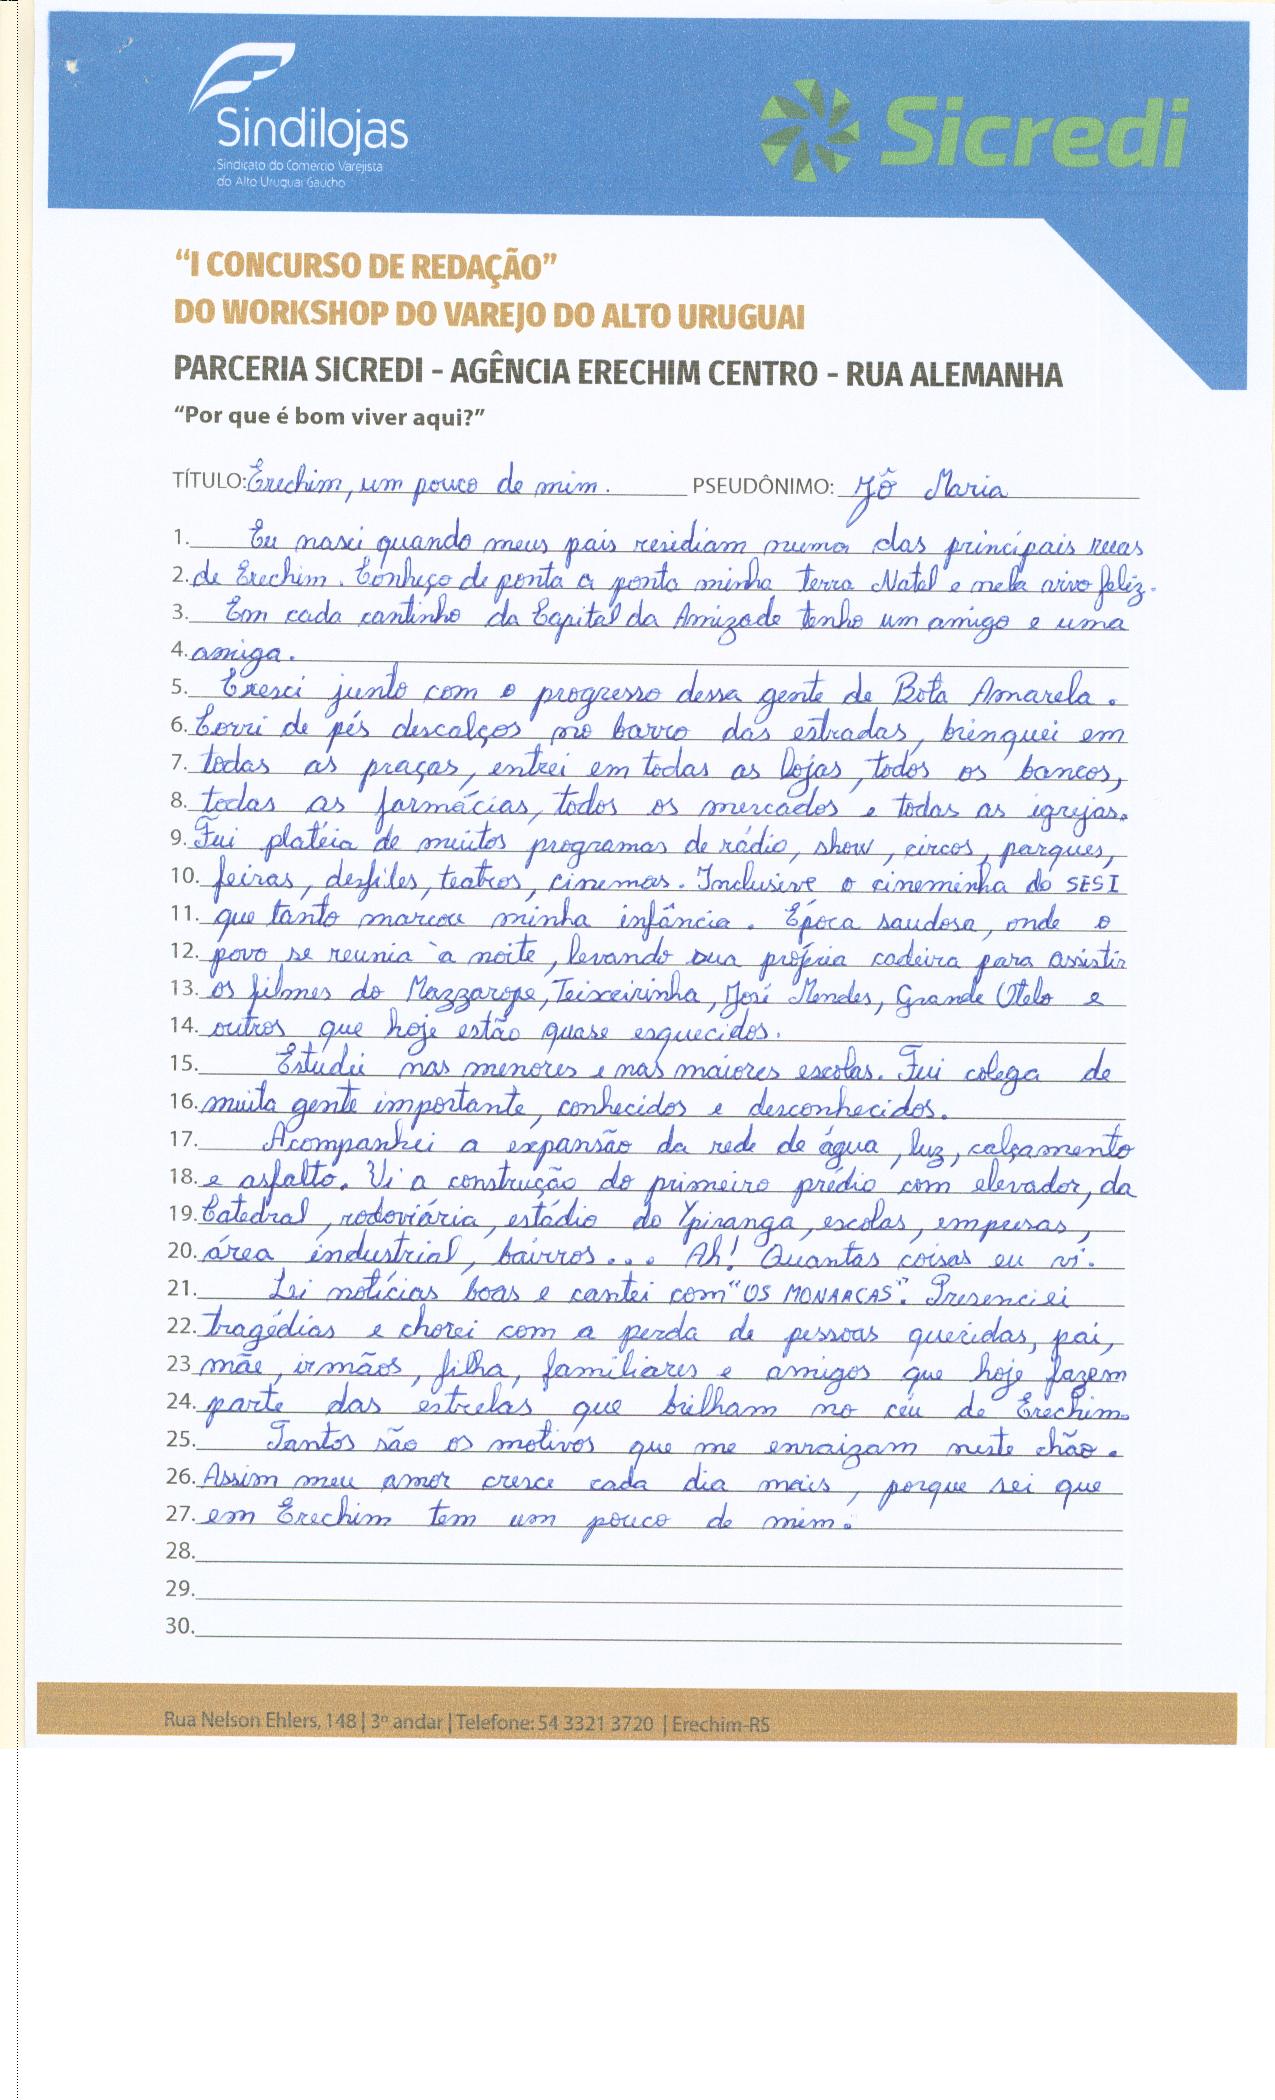 Sindilojas
Sindicato do Comercio Varejista
do Alto Uruguai Gaucho
Sicredi
“I CONCURSO DE REDAÇÃO”
DO WORKSHOP DO VAREJO DO ALTO URUGUAI
PARCERIA SICREDI - AGÊNCIA ERECHIM CENTRO - RUA ALEMANHA
“Por que é bom viver aqui?”
TÍTULO: Erechim, um pouco de mim. PSEUDÔNIMO: Jô Maria
1. Eu nasci quando meus pais residiam numa das principais ruas
2. de Erechim. Conheço de ponta a ponta minha terra Natal e nela vivo feliz.
3. Em cada cantinho da Capital da Amizade tenho um amigo e uma
4. amiga.
5. Cresci junto com o progresso dessa gente de Bota Amarela.
6. Corri de pés descalços no barro das estradas, brinquei em
7. todas as praças, entrei em todas as lojas, todos os bancos,
8. todas as farmácias, todos os mercados e todas as igrejas.
9. Fui platéia de muitos programas de rádio, show, circos, parques,
10. feiras, desfiles, teatros, cinemas. Inclusive o cineminha do SESI
11. que tanto marcou minha infância. Época saudosa, onde o
12. povo se reunia à noite, levando sua própria cadeira para assistir
13. os filmes do Mazzarope, Teixeirinha, José Mendes, Grande Otelo e
14. outros que hoje estão quase esquecidos.
15. Estudei nas menores e nas maiores escolas. Fui colega de
16. muita gente importante, conhecidos e desconhecidos.
17. Acompanhei a expansão da rede de água, luz, calçamento
18. e asfalto. Vi a construção do primeiro prédio com elevador, da
19. Catedral, rodoviária, estádio do Ypiranga, escolas, empresas,
20. área industrial, bairros... Ah! Quantas coisas eu vi.
21. Lei notícias boas e cantei com "OS MONARCAS". Presenciei
22. tragédias e chorei com a perda de pessoas queridas, pai,
23 mãe, irmãos, filha, familiares e amigos que hoje fazem
24. parte das estrelas que brilham no céu de Erechim.
25. Tantos são os motivos que me enraizam neste chão.
26. Assim meu amor cresce cada dia mais, porque sei que
27. em Erechim tem um pouco de mim.
28.
29.
30.
Rua Nelson Ehlers, 148 | 3º andar | Telefone: 54 3321 3720 | Erechim-RS